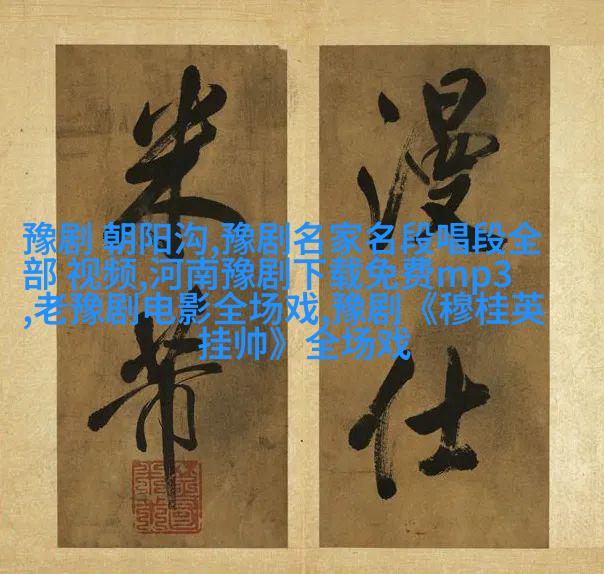 漫仕
米芾
豫剧 朝阳沟,豫剧名家名段唱段全
部 视频,河南豫剧下载免费mp3
,老豫剧电影全场戏,豫剧《穆桂英
挂帅》 全场戏